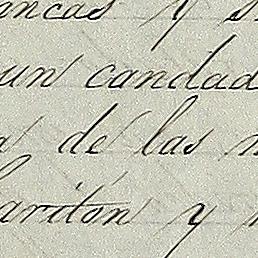 ancas y s
un candad
a de las n
ariton y